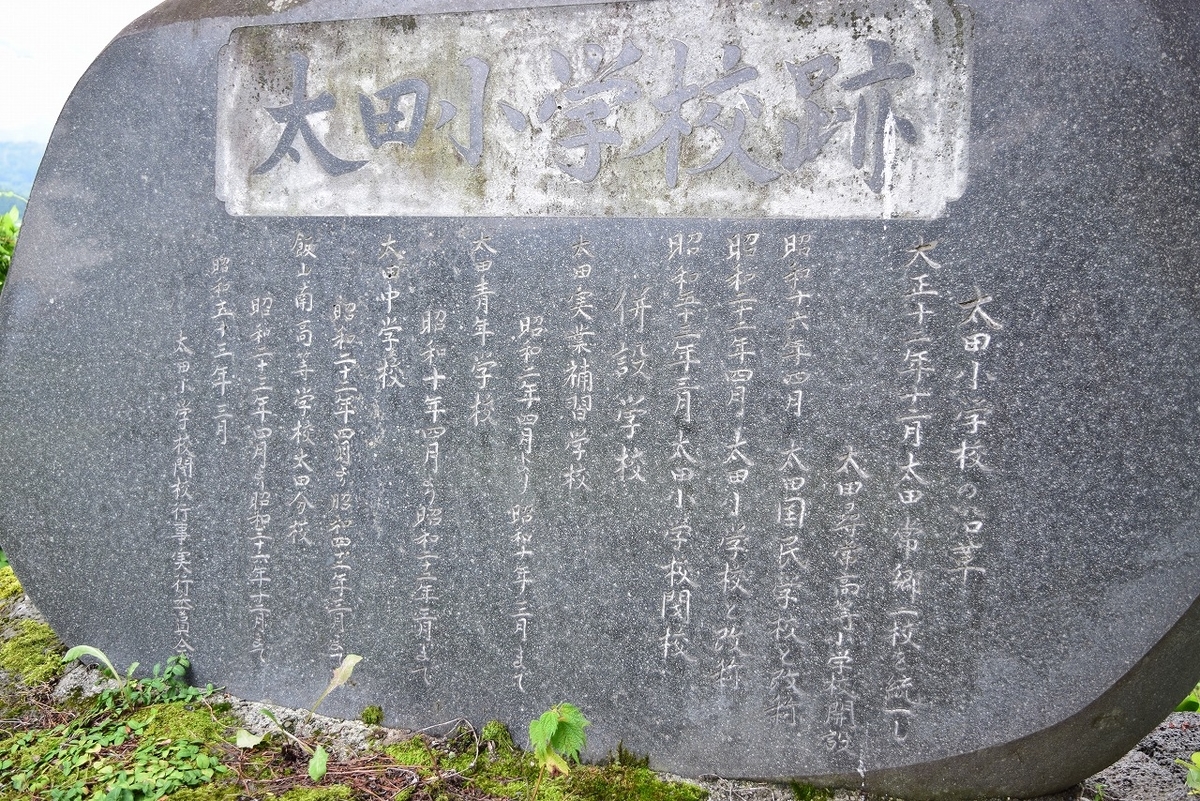 太田小学校跡
太田小学校の沿革
大正十一年十二月太田常郷二校を統一し
太田尋常高等小学校開設
昭和十六年四月 太田国民学校と改称
昭和二十二年四月 太田小学校と改称
昭和五十三年三月 太田小学校閉校
併設学校
太田実業補習学校
昭和二年四月より昭和十年三月まで
太田青年学校
昭和十年四月より昭和二十二年三月まで
太田中学校
昭和二十二年四月より昭和四十二年三月まで
飯山南高等学校太田分校
昭和二十三年四月より昭和三十六年十二月まで
昭和五十三年三月
太田小学校閉校行事実行委員会